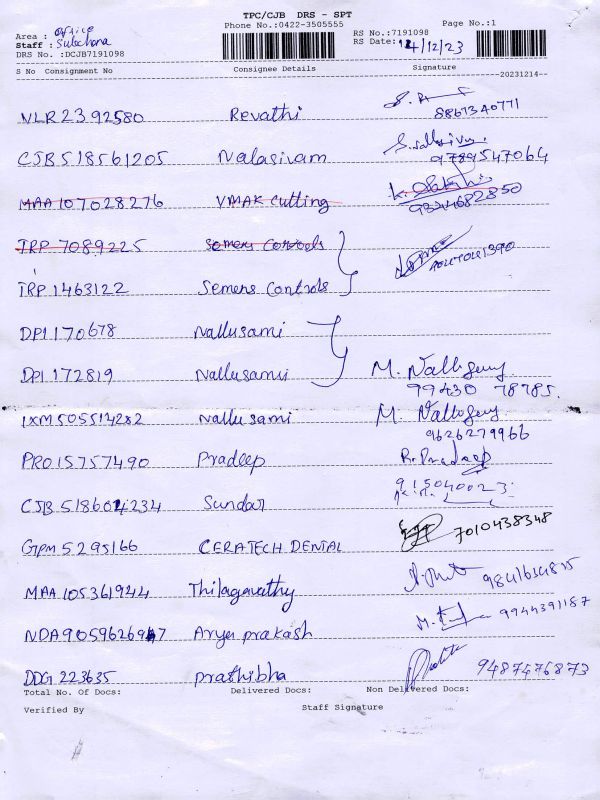 TPC/CJB DRS - SPT
Phone No.:0422-3505555 Page No.:1
Area : Office
Staff : Sulochana
DRS No. :DCJB7191098
RS No.:7191098
RS Date: 14/12/23
S No Consignment No Consignee Details Signature
20231214--
NLR2392580 Revathi
8867340771
CJB518561205 Nalasivam
9789547064
MAA107028276 VMAK Cutting
9324682850
TRP 7089225 Semens Controls
TRP 1463122 Semens Controls
DPI 170678 Nallusami
DPI 172819 Nallusami M. Nallusamy
99430 78785.
IXM505514282 Nallusami M. Nallusamy
9626279966
PRO15757490 Pradeep R. Pradeep
CJB 518604234 Sundar 915040023
GTPM 5295166 CERATECH DENTAL 7010438348
MAA 105361944 Thilagavathy 9841634815
NDA905962 Arya prakash 9944391187
DDG 223635 prathibha 9487476873
Total No. Of Docs: Delivered Docs: Non Delivered Docs:
Verified By Staff Signature